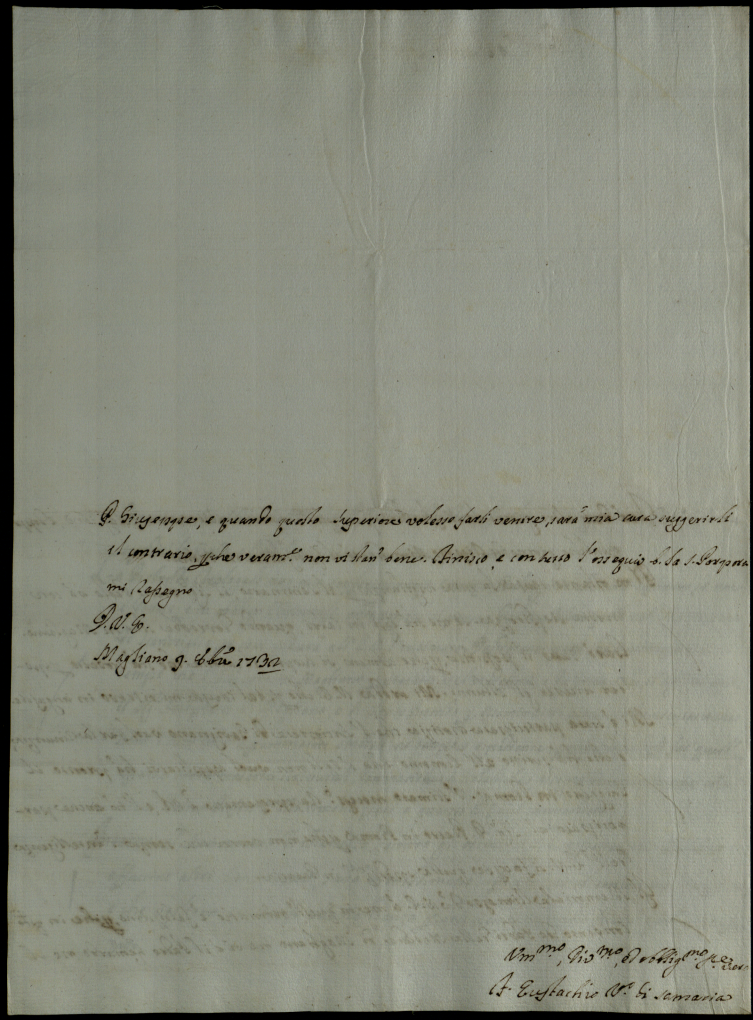 e quando questo Superiore volesse farli venire, sarà mia cura suggerirli
il contrario, p̱che veram.te non vi stan' bene. Finisco, e con tutto l'ossequio b. la S. Porpora
mi rassegno
D. V. E.
Magliano 9. 8bre 1732
Um.mo, Div.mo, ed obblig.mo Se. Ser.
F. Eustachio V.o di Samaria